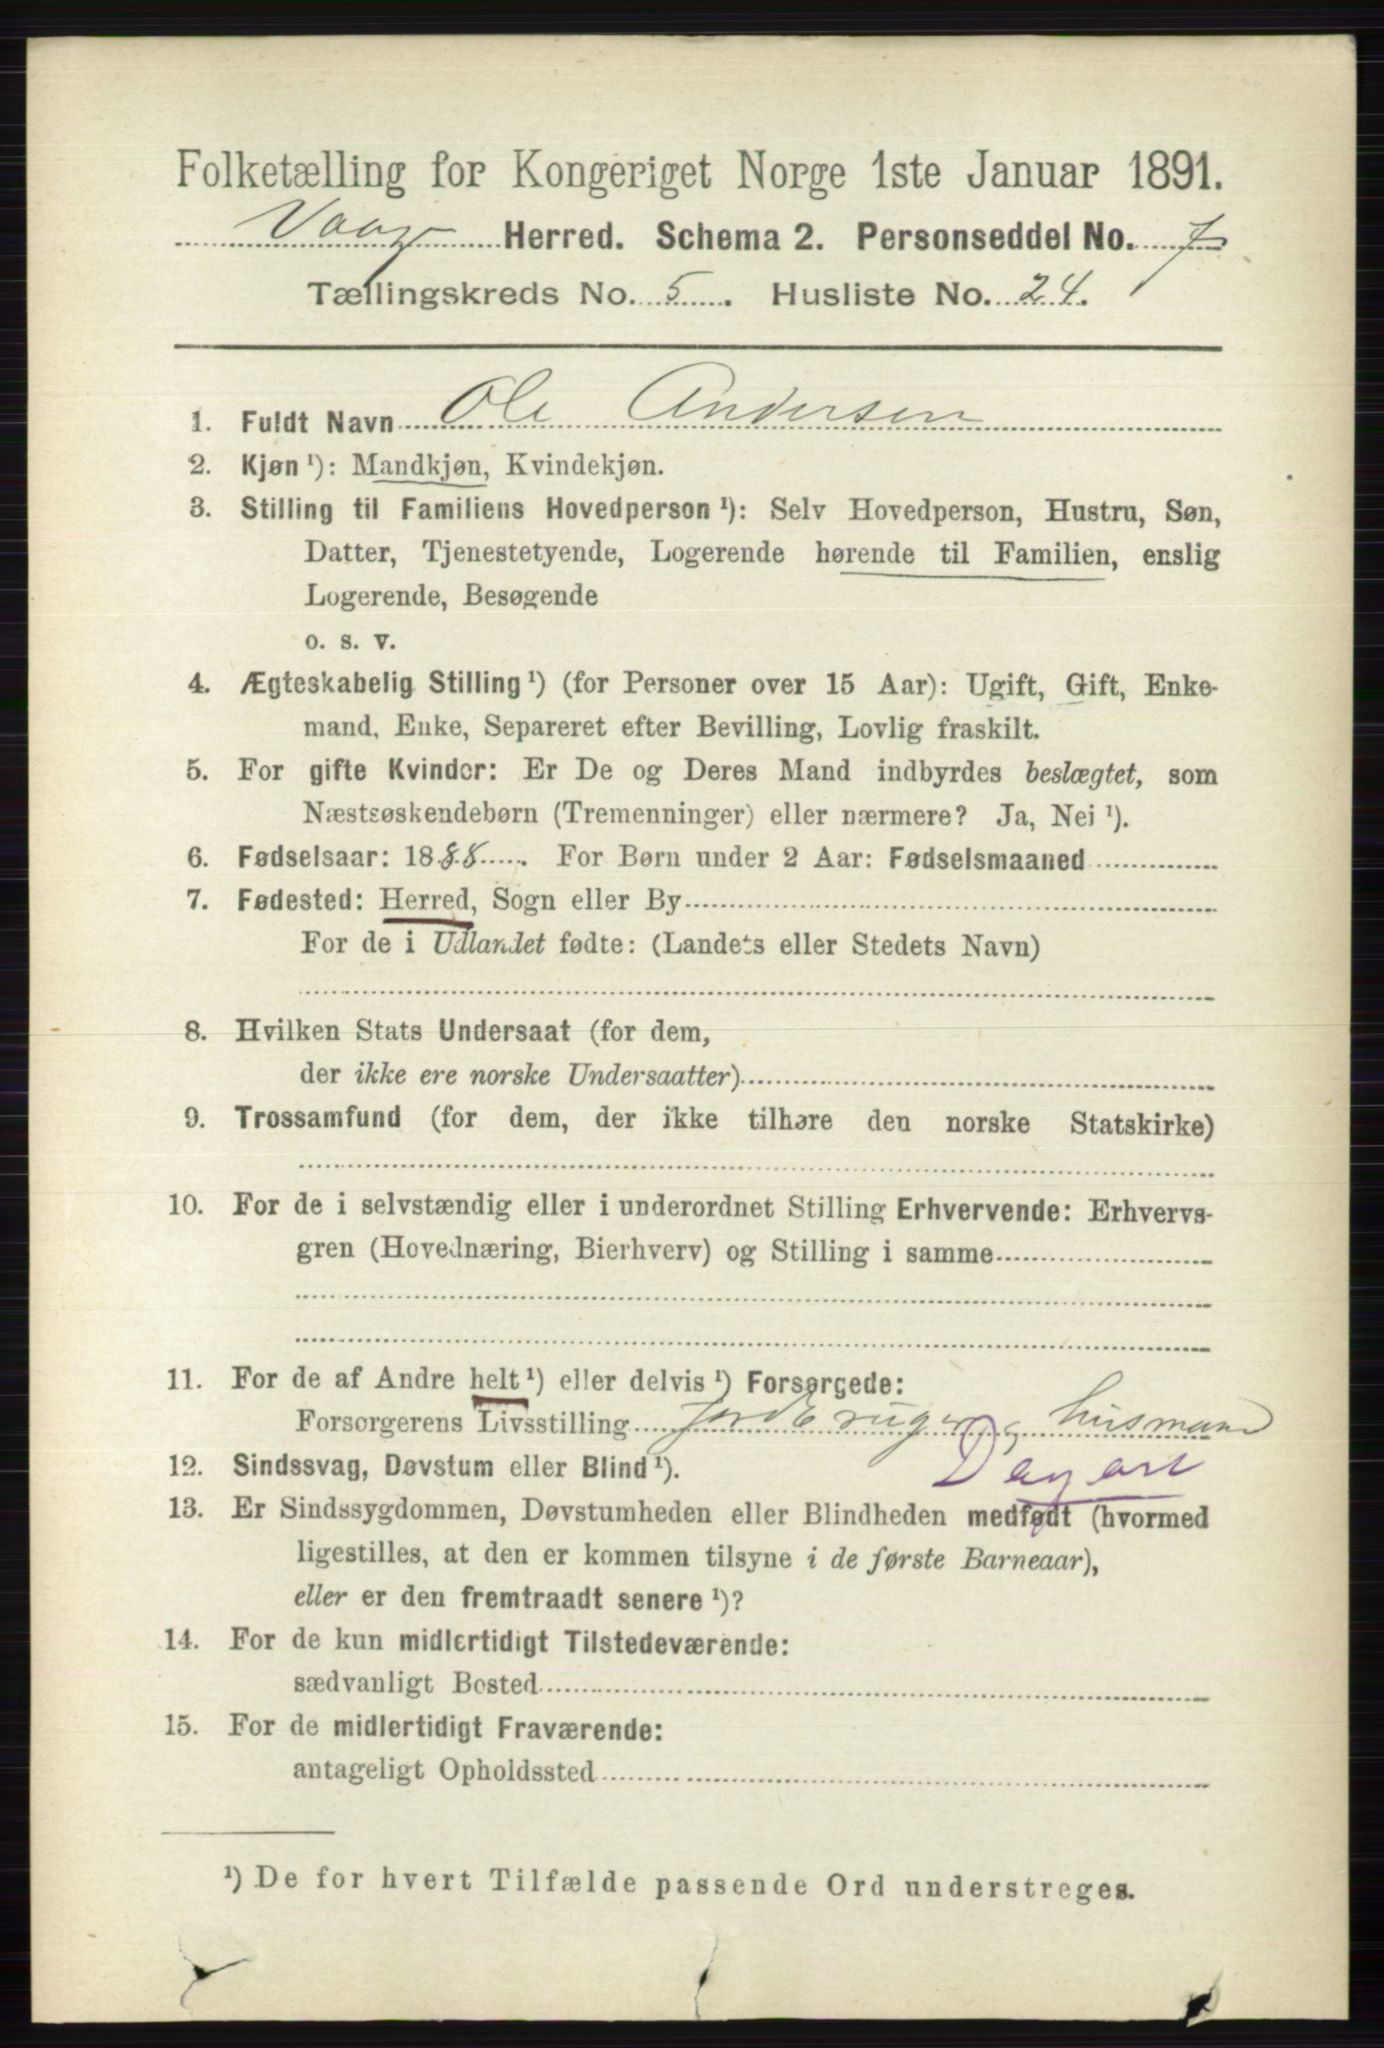 Folketælling for Kongeriget Norge 1ste Januar 1891.
Vaage Herred. Schema 2. Personseddel No. 7
Tællingskreds No. 5. Husliste No. 24.
1. Fuldt Navn Ole Andersen
2. Kjøn ¹): Mandkjøn, Kvindekjøn.
3. Stilling til Familiens Hovedperson ¹): Selv Hovedperson, Hustru, Søn,
Datter, Tjenestetyende, Logerende hørende til Familien, enslig
Logerende, Besøgende
o. s. v.
4. Ægteskabelig Stilling ¹) (for Personer over 15 Aar): Ugift, Gift, Enke-
mand, Enke, Separeret efter Bevilling, Lovlig fraskilt.
5. For gifte Kvinder: Er De og Deres Mand indbyrdes beslægtet, som
Næstsøskendebørn (Tremenninger) eller nærmere? Ja, Nei ¹).
6. Fødselsaar: 1888. For Børn under 2 Aar: Fødselsmaaned
7. Fødested: Herred, Sogn eller By
For de i Udlandet fødte: (Landets eller Stedets Navn)
8. Hvilken Stats Undersaat (for dem,
der ikke ere norske Undersaatter)
9. Trossamfund (for dem, der ikke tilhøre den norske Statskirke)
10. For de i selvstændig eller i underordnet Stilling Erhvervende: Erhvervs-
gren (Hovednæring, Bierhverv) og Stilling i samme
11. For de af Andre helt ¹) eller delvis ¹) Forsørgede:
Forsørgerens Livsstilling Jordbruger, husmand
12. Sindssvag, Døvstum eller Blind ¹). Dagarb
13. Er Sindssygdommen, Døvstumheden eller Blindheden medfødt (hvormed
ligestilles, at den er kommen tilsyne i de første Barneaar),
eller er den fremtraadt senere ¹)?
14. For de kun midlertidigt Tilstedeværende:
sædvanligt Bosted
15. For de midlertidigt Fraværende:
antageligt Opholdssted
¹) De for hvert Tilfælde passende Ord understreges.